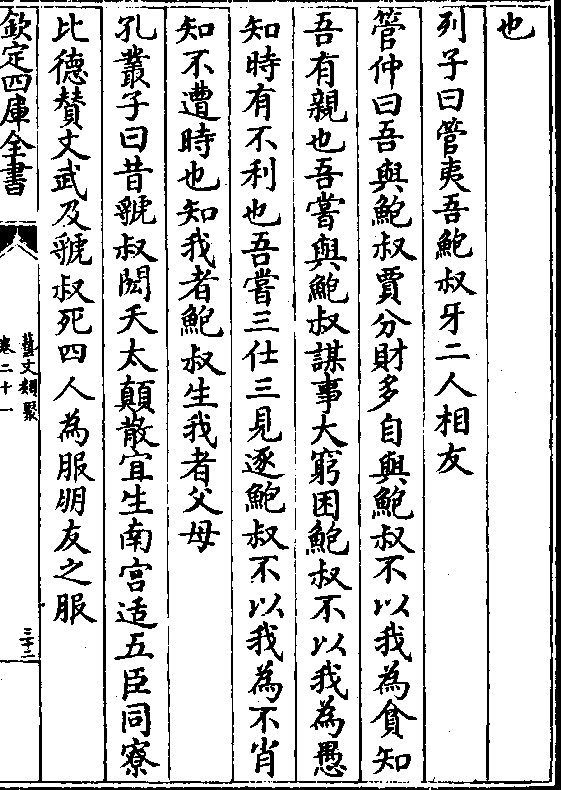 也
列子曰管夷吾鮑叔牙二人相友
管仲曰吾與鮑叔賈分財多自與鮑叔不以我為貪知
吾有親也吾嘗與鮑叔謀事大窮困鮑叔不以我為愚
知時有不利也吾嘗三仕三見逐鮑叔不以我為不肖
知不遭時也知我者鮑叔生我者父母
孔叢子曰昔虢叔閎夭太顛散宜生南宫适五臣同寮
比德贊文武及虢叔死四人為服朋友之服
欽定四庫全書
藝文類聚
卷二十一